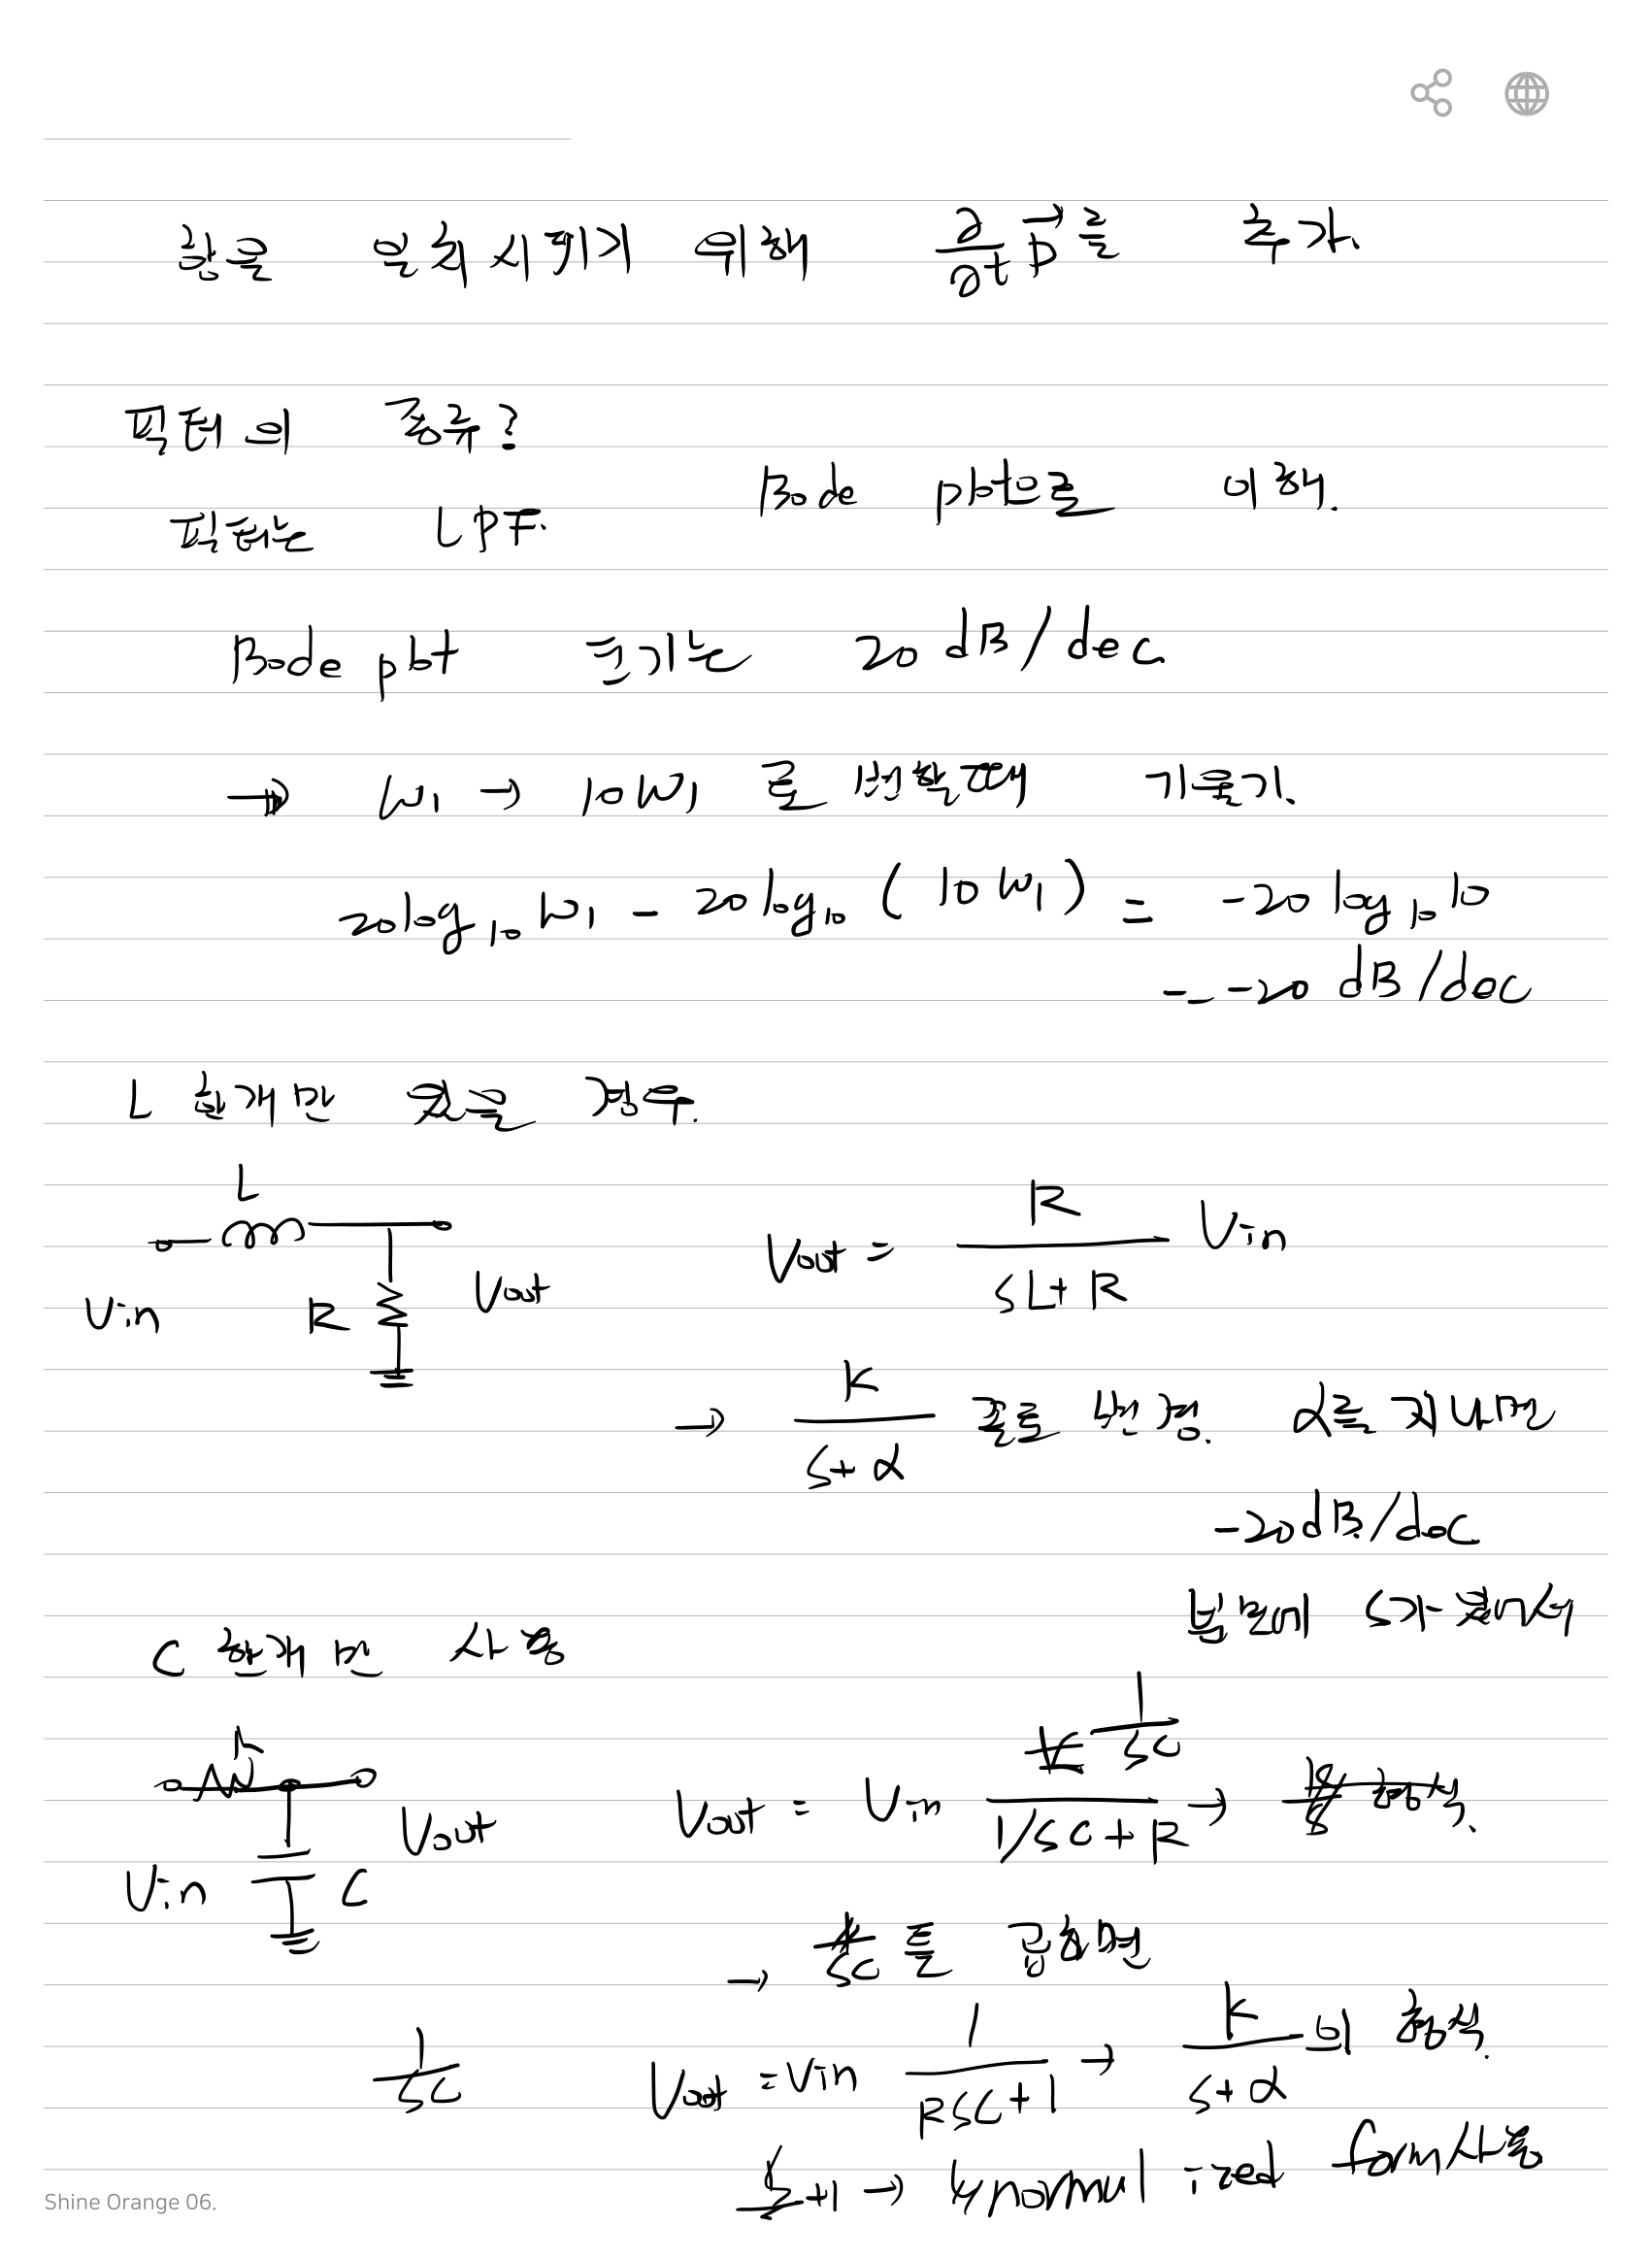 항을 일치시키기 위해 ∂/∂t D⃗를 추가.
필터의 종류?
Bode plot으로 이해.
필터는 LPF.
Bode plot 크기는 20 dB/dec
→ W₁ → 10W₁ 로 변할때 기울기.
20log₁₀W₁ - 20log₁₀(10W₁) = -20log₁₀10
= -20 dB/dec
L 한개만 있을 경우.
L
Vin R Vout
Vout = R/(sL+R) Vin
→ K/(s+α) 꼴로 변경. α를 지나면
-20dB/dec
분모에 s가 있어서
C 한개만 사용
Vin C Vout
Vout = Vin (1/sC)/(1/sC+R) → 형식.
→ sC를 곱하면
1/sC
Vout = Vin 1/(RsC+1) → K/(s+α)의 형식.
+1 → normalized form 사용
Shine Orange 06.